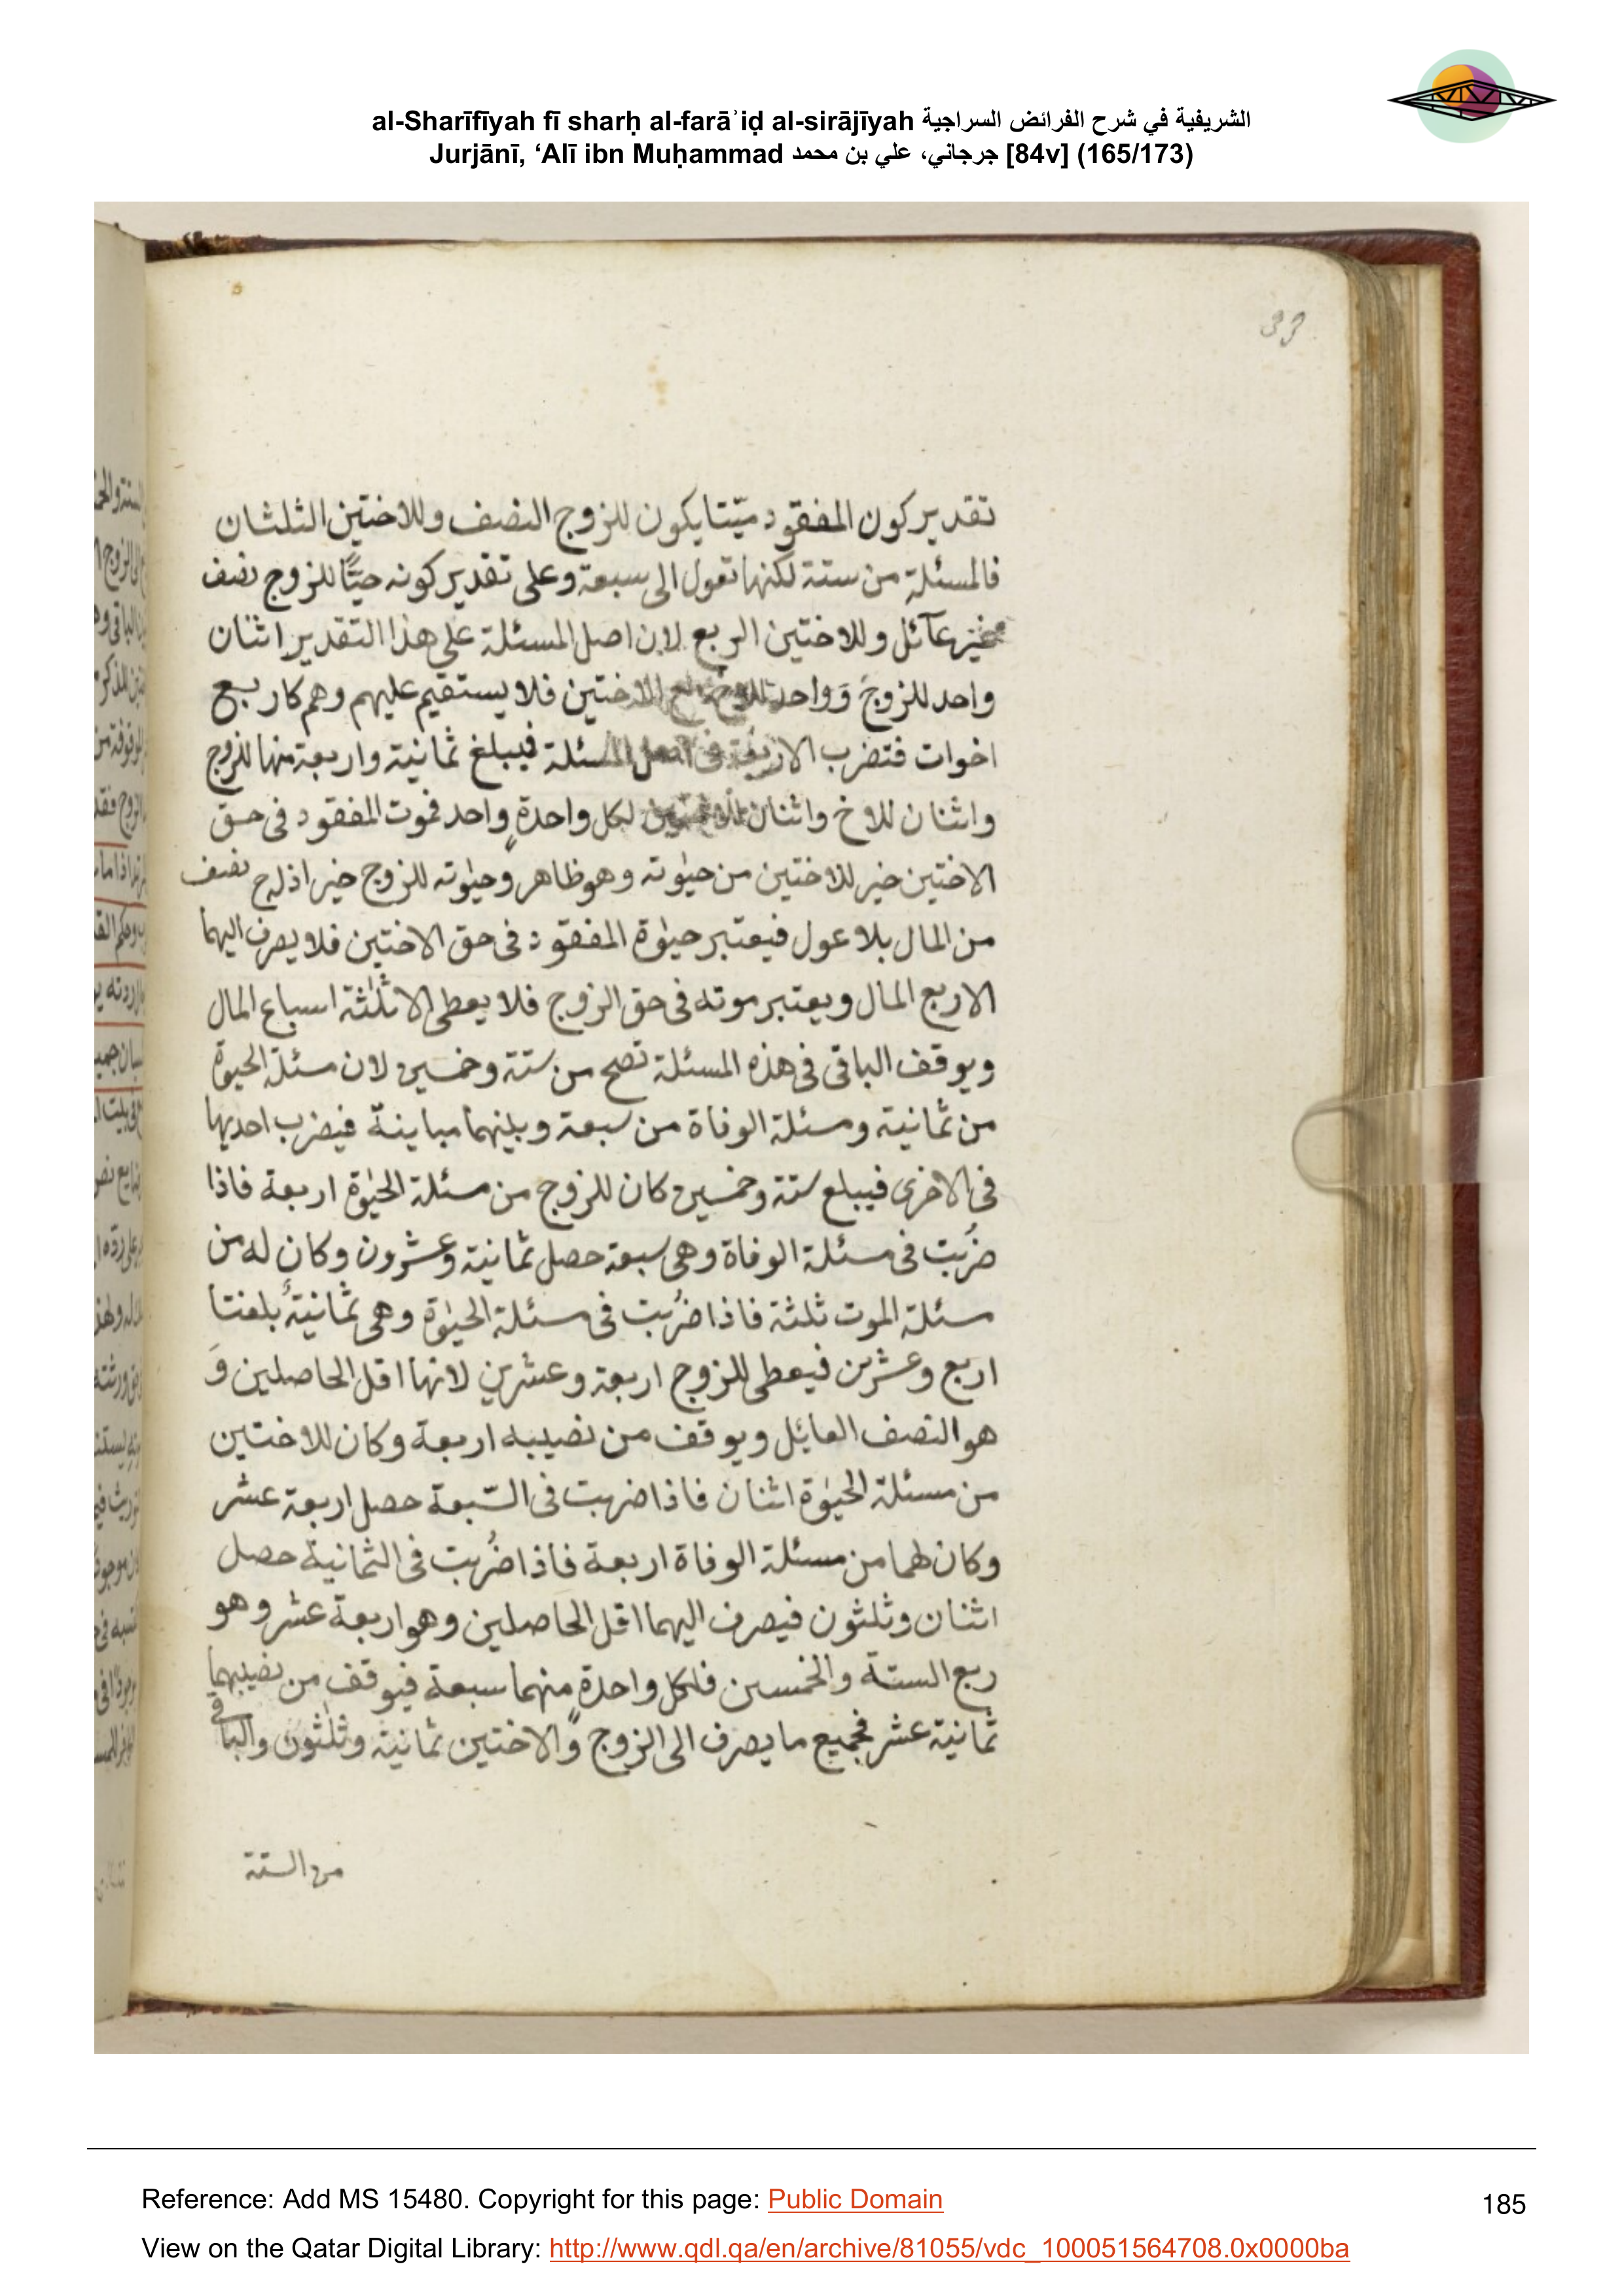 al-Sharīfīyah fī sharḥ al-farāʾiḍ al-sirājīyah الشريفية في شرح الفرائض السراجية
Jurjānī, ‘Alī ibn Muḥammad جرجاني، علي بن محمد [84v] (165/173)
تقدير كون المفقود ميّتا يكون للزوج النصف وللاختين الثلثان
فالمسئلة من ستة لكنها تعول الى سبعة وعلى تقدير كونه حيًّا للزوج نصف
غير عآئل وللاختين الربع لان اصل المسئلة على هذا التقدير اثنان
واحد للزوج وَواحد للاخ مع الاختين فلا يستقيم عليهم وهم كاربع
اخوات فتضرب الاربعة فى اصل المسئلة فيبلغ ثمانية واربعة منها للزوج
واثنان للاخ واثنان للاختين لكل واحدةٍ واحد فموت المفقود فى حق
الاختين خير للاختين من حيٰوته وهو ظاهر وحيٰوته للزوج خير اذ له ح نصف
من المال بلا عول فيعتبر حيٰوة المفقود فى حق الاختين فلا يصرف اليهما
الا ربع المال ويعتبر موته فى حق الزوج فلا يعطى الا ثلٰثة اسباع المال
ويوقف الباقى فى هذه المسئلة تصح من ستة وخمسين لان مسئلة الحيٰوة
من ثمانية ومسئلة الوفاة من سبعة وبينهما مباينة فيضرب احديها
فى الاخرى فيبلع ستة وخمسين كان للزوج من مسئلة الحيٰوة اربعة فاذا
ضُربت فى مسئلة الوفاة وهى سبعة حصل ثمانية وعشرون وكان له من
مسئلة الموت ثلثة فاذا ضُربت فى مسئلة الحيٰوة وهى ثمانيةٌ بلغتا
اربع وعشرين فيعطى للزوج اربعة وعشرين لانها اقل الحاصلين وَ
هو النصف العائل ويوقف من نصيبه اربعة وكان للاختين
من مسئلة الحيٰوة اثنان فاذا ضربت فى السّبعة حصل اربعة عشر
وكان لهما من مسئلة الوفاة اربعة فاذا ضُربت فى الثمانية حصل
اثنان وثلثون فيصرف اليهما اقل الحاصلين وهو اربعة عشر وهو
ربع الستة والخمسين فلكل واحدةٍ منهما سبعة فيوقف من نصيبهما
ثمانية عشر فجميع ما يصرف الى الزوج والاختين ثمانية وثلٰثون والباقى
من الستة
Reference: Add MS 15480. Copyright for this page: Public Domain
185
View on the Qatar Digital Library: http://www.qdl.qa/en/archive/81055/vdc_100051564708.0x0000ba